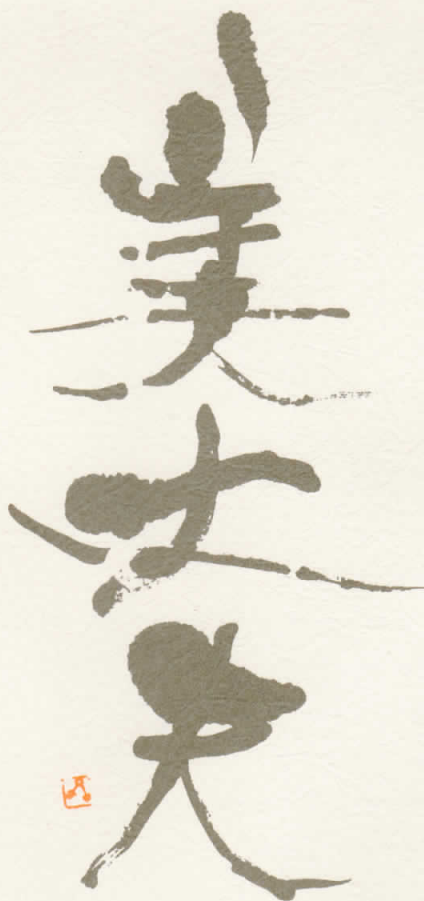 美丈夫